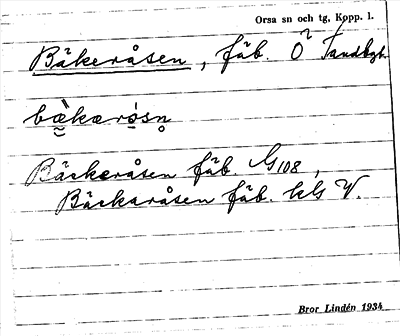 Orsa sn och tg, Kopp. l.
Bäkeråsen, fäb. Ö Sandbgh.
bæ̀kærósn̥
Bäckeråsen fäb. G 108,
Bäckaråsen fäb. kls V.
Bror Lindén 1934